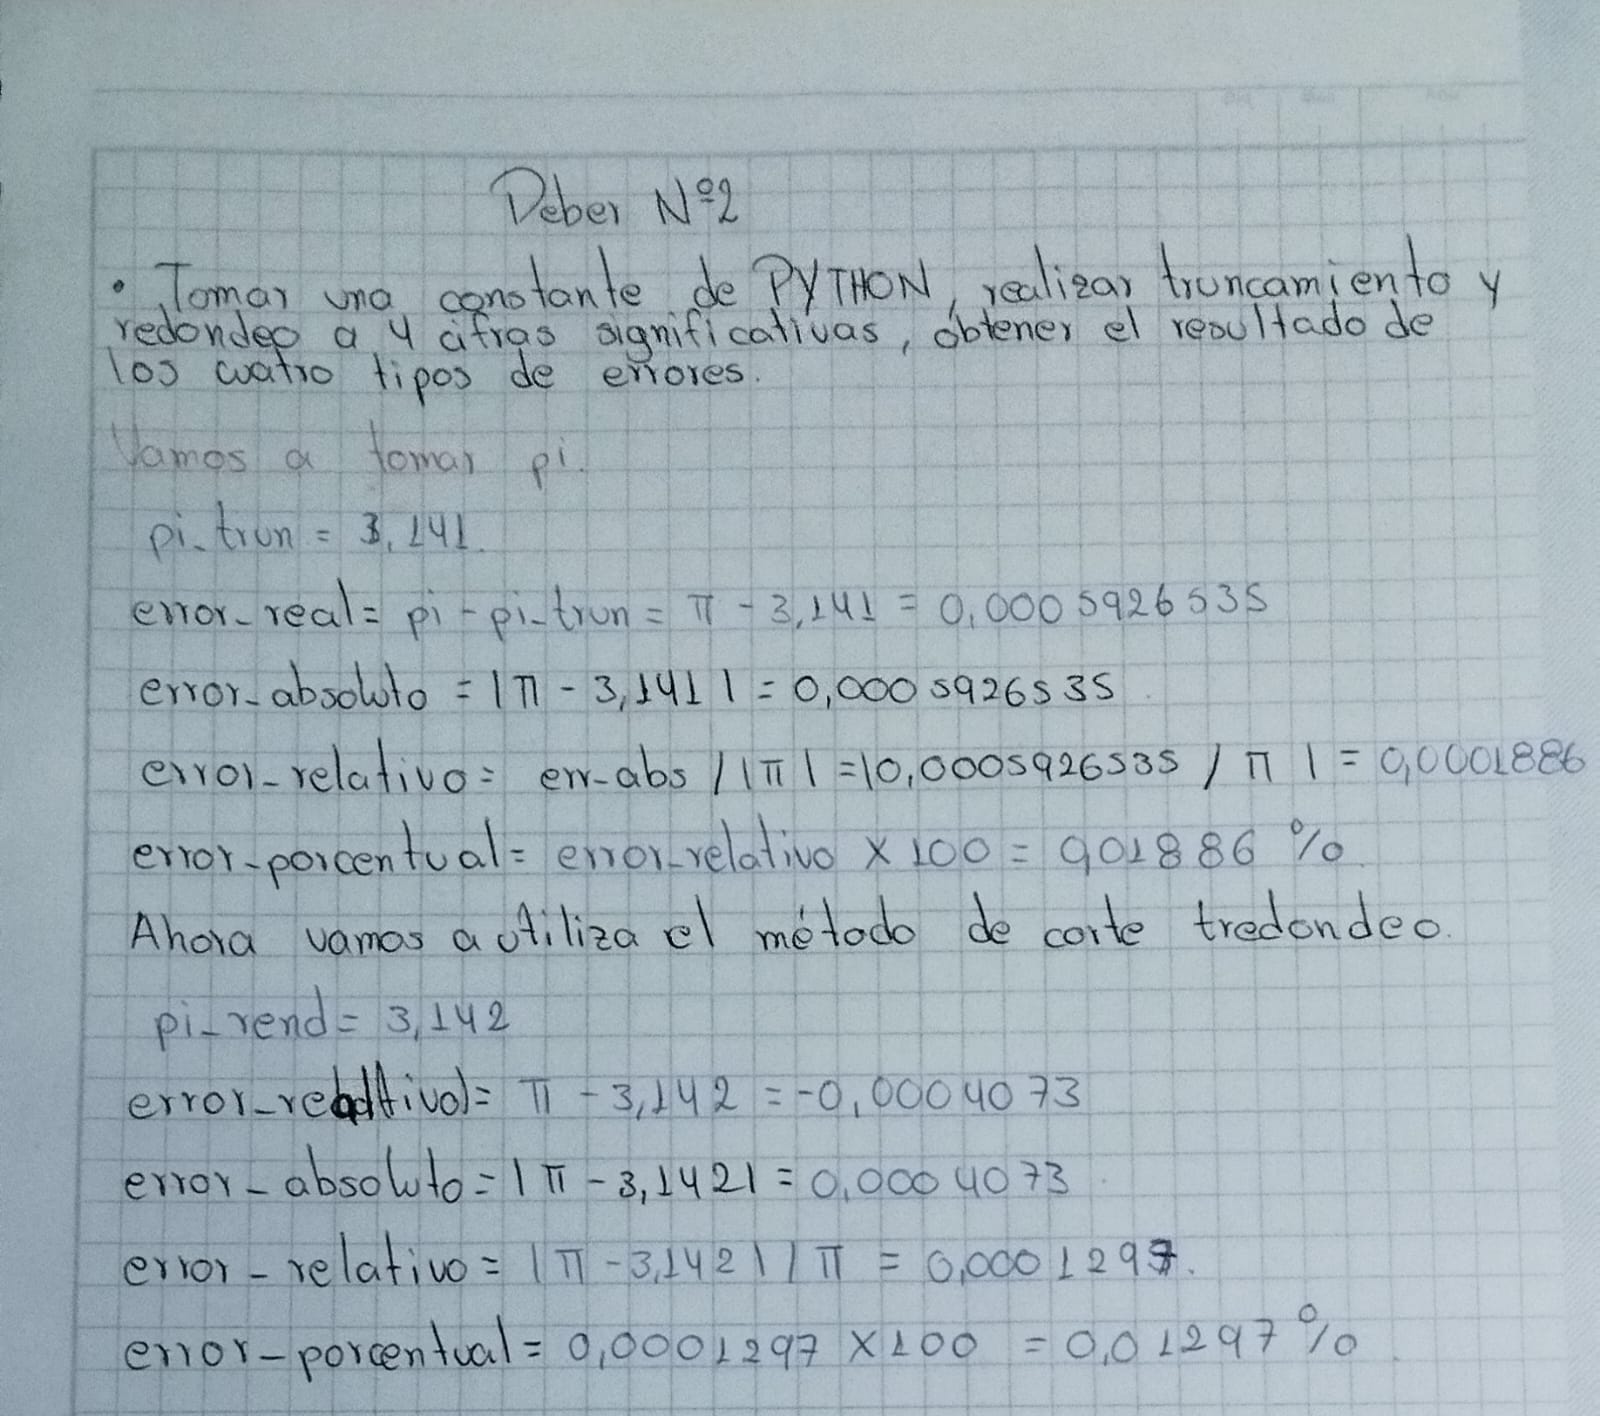 Deber Nº2
• Tomar una constante de PYTHON, realizar truncamiento y
redondeo a 4 cifras significativas, obtener el resultado de
los cuatro tipos de errores.
Vamos a tomar pi.
pi_trun = 3,141.
error_real = pi - pi_trun = π - 3,141 = 0,0005926535
error_absoluto = |π - 3,141| = 0,0005926535.
error_relativo = err_abs / |π| = |0,0005926535 / π| = 0,0001886
error_porcentual = error_relativo x 100 = 0,01886 %.
Ahora vamos a utiliza el método de corte tredondeo.
pi_rend = 3,142
π - 3,142 = -0,0004073
error_absoluto = |π - 3,142| = 0,0004073.
error_relativo = |π - 3,142| / π = 0,0001297.
error_porcentual = 0,0001297 x 100 = 0,01297 %.